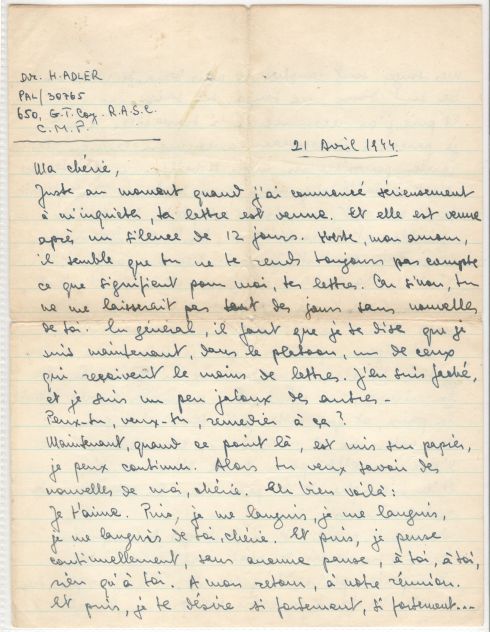 Dvr. H. ADLER
PAL/30765
650, G.T. Coy. R.A.S.C.
C.M.F.
21 Avril 1944
Ma chérie,
Juste au moment quand j'ai commencé sérieusement
à m'inquiéter, ta lettre est venue. Et elle est venue
après un silence de 12 jours. mon amour,
il semble que tu ne te rends toujours pas compte
ce que signifient pour moi, tes lettres. Car sinon, tu
ne me laisserait pas tant des jours sans nouvelles
de toi. En général, il faut que je te dise que je
suis maintenant, dans le platoon, un de ceux
qui reçoivent le moins de lettres. J'en suis faché,
et je suis un peu jaloux des autres -
Peux-tu, veux-tu, remedier à ça?
Maintenant, quand ce point là, est mis sur papier,
je peux continuer. Alors tu veux savoir des
nouvelles de moi, chérie. Eh bien voilà:
Je t'aime. Puis, je me languis, je me languis,
je me languis de toi, chérie. Et puis, je pense
continuellement, sans aucune pause, à toi, à toi,
rien qu'à toi. A mon retour, à notre réunion.
Et puis, je te désire si fortement, si fortement...